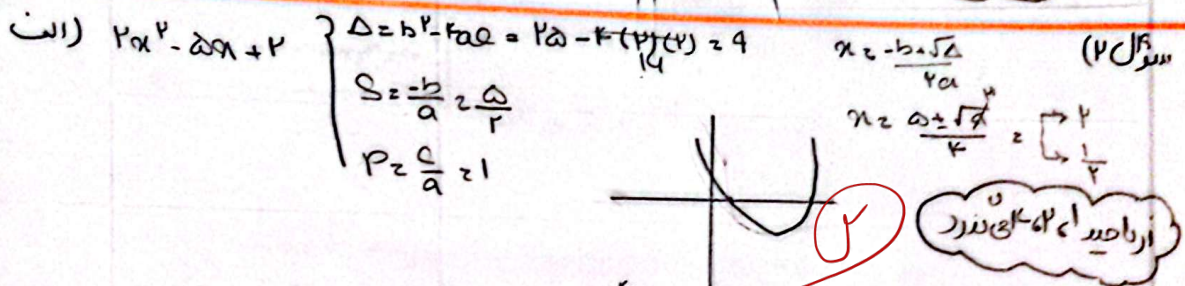 سوال ۲)
الف) ۲x² - ۵x + ۲
Δ = b² - ۴ac = ۲۵ - ۴(۲)(۲) = ۹
۱۶
S = -b/a = ۵/۲
P = c/a = ۱
x = -b ± √Δ / ۲a
x = ۵ ± √۹ / ۴ = → ۲ → ۱/۲
۳
از ناحیه ۱، ۲، ۴ می گذرد
۲